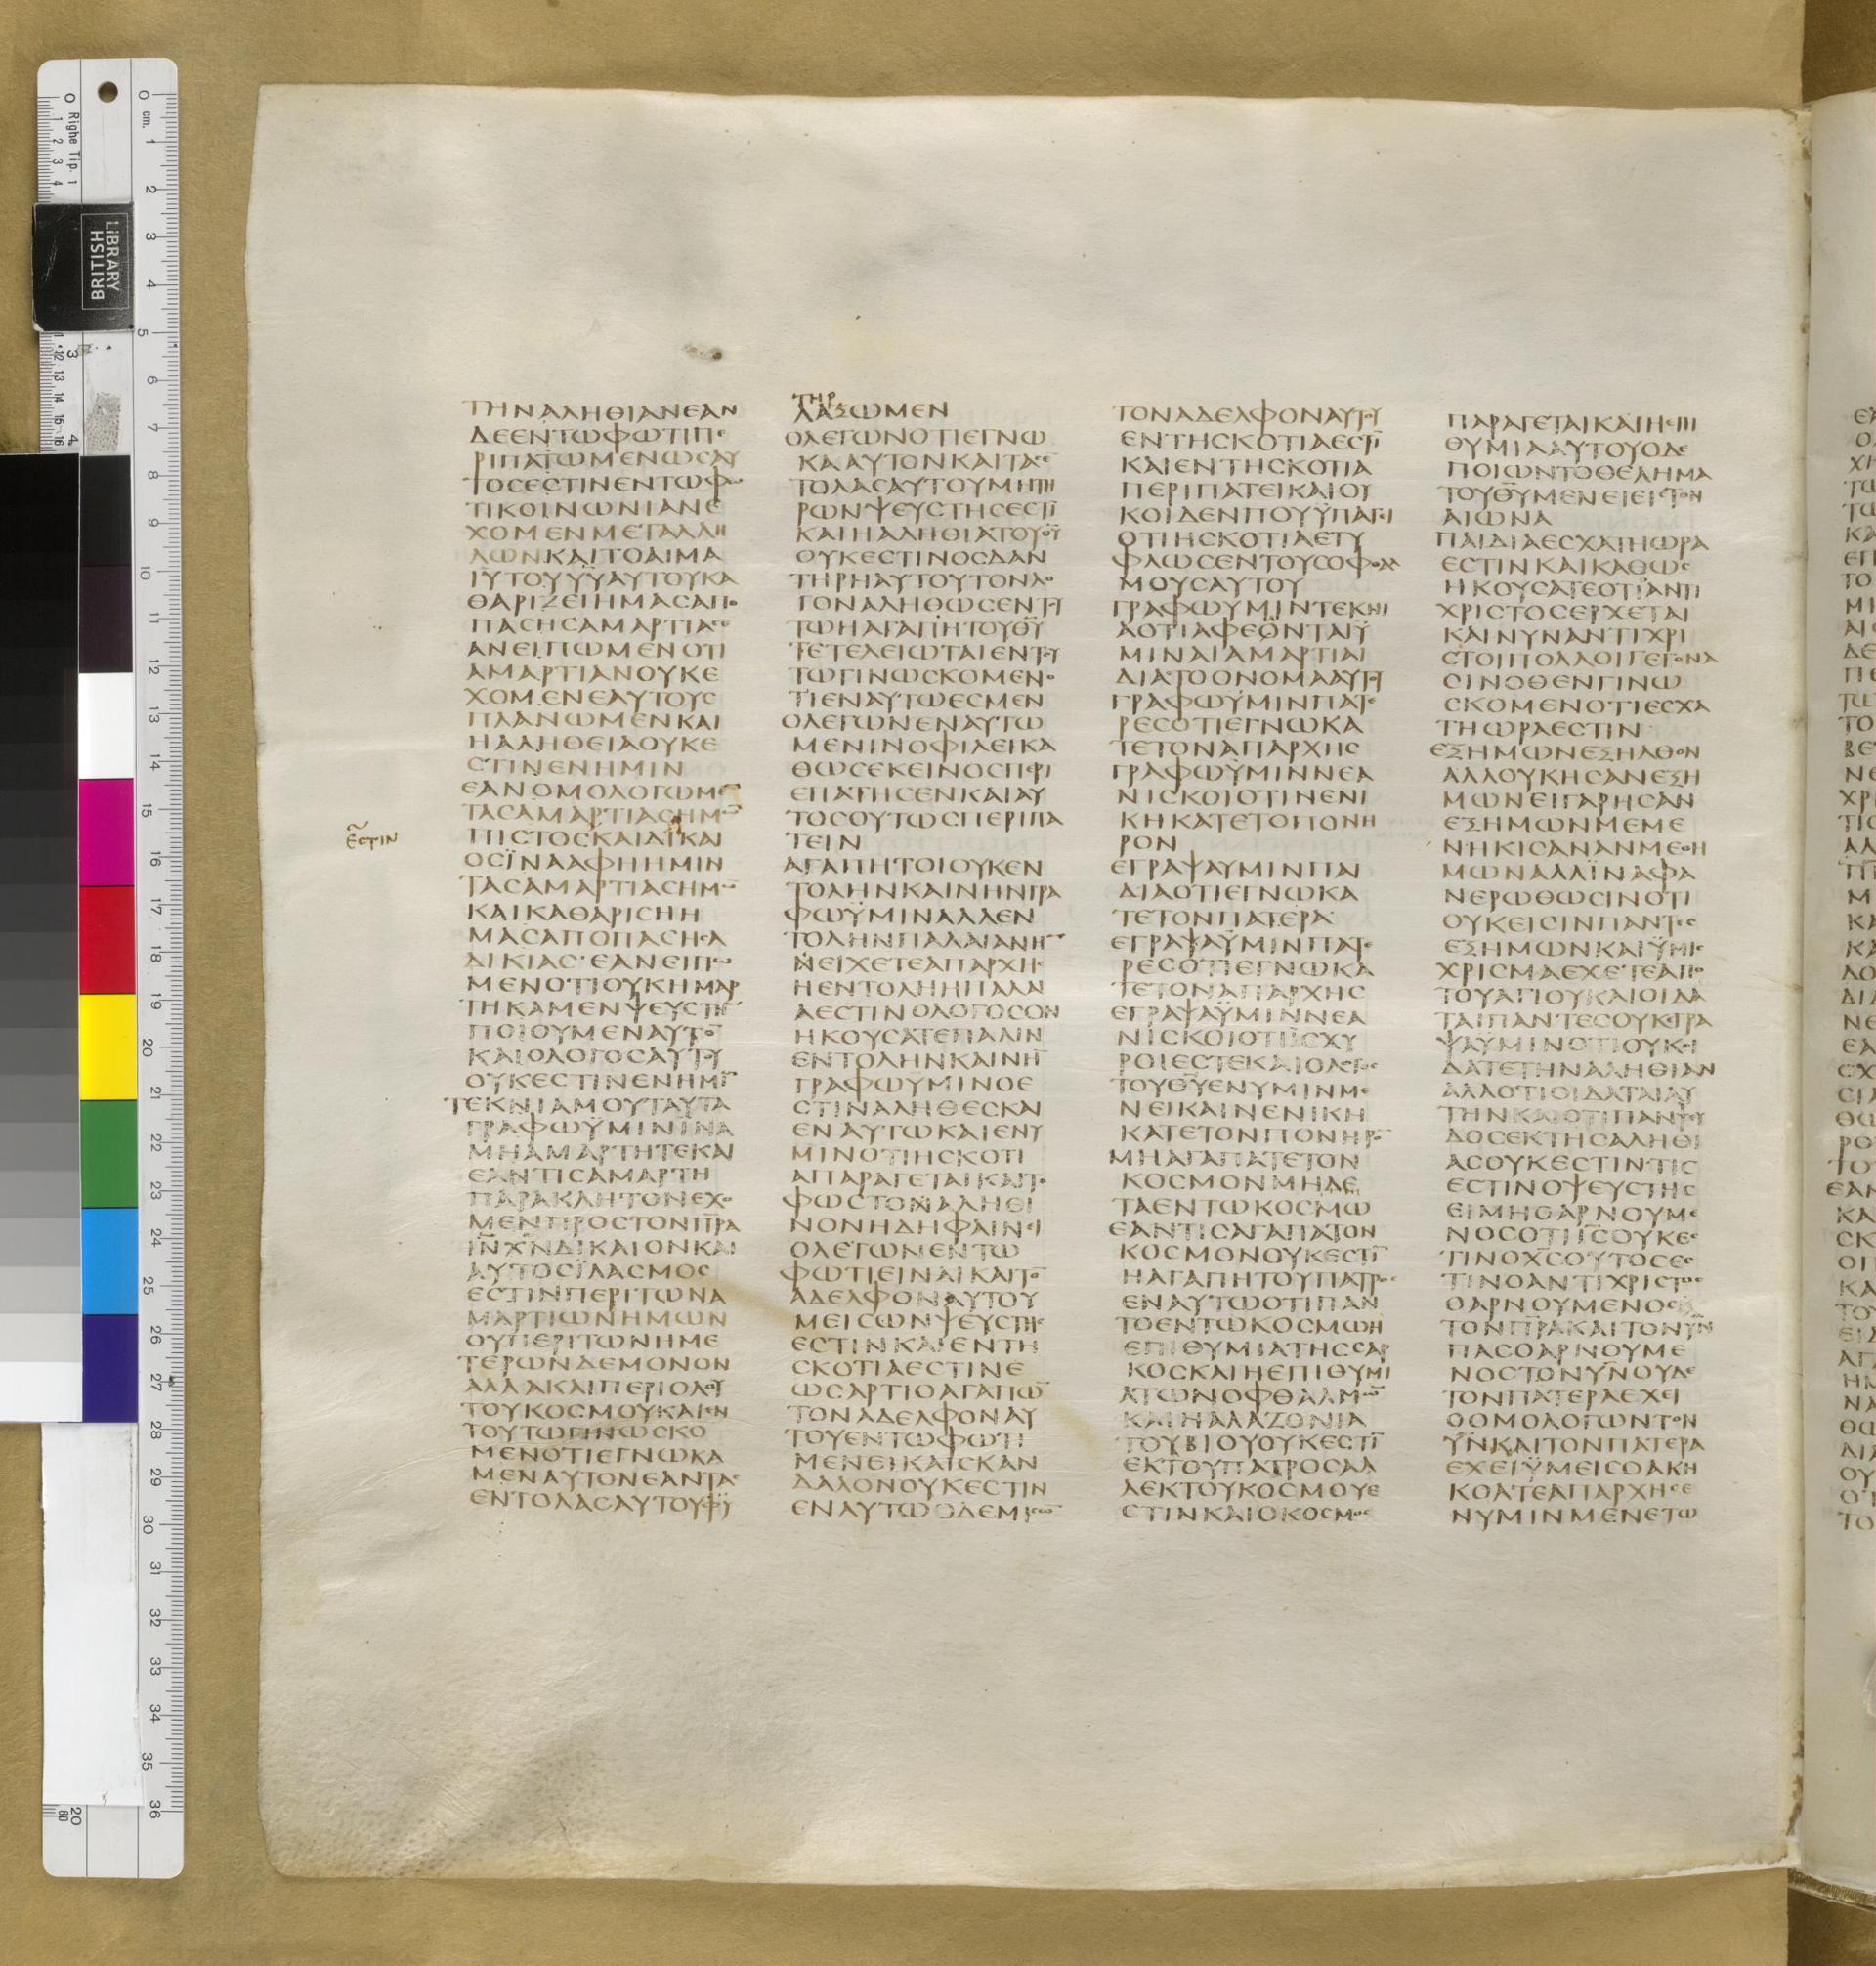 ΤΗΝΑΛΗΘΙΑΝΕΑΝ
ΔΕΕΝΤΩΦΩΤΙΠΕ
ΡΙΠΑΤΩΜΕΝΩCΑΥ
ΤΟCΕCΤΙΝΕΝΤΩΦΩ
ΤΙΚΟΙΝΩΝΙΑΝΕ
ΧΟΜΕΝΜΕΤΑΛΛΗ
ΛΩΝΚΑΙΤΟΑΙΜΑ
ΙΥΤΟΥΥΥΑΥΤΟΥΚΑ
ΘΑΡΙΖΕΙΗΜΑCΑΠΟ
ΠΑCΗCΑΜΑΡΤΙΑC
ΑΝΕΙΠΩΜΕΝΟΤΙ
ΑΜΑΡΤΙΑΝΟΥΚΕ
ΧΟΜΕΝΕΑΥΤΟΥC
ΠΛΑΝΩΜΕΝΚΑΙ
ΗΑΛΗΘΕΙΑΟΥΚΕ
CΤΙΝΕΝΗΜΙΝ
ΕΑΝΟΜΟΛΟΓΩΜΕ
ΤΑCΑΜΑΡΤΙΑCΗΜΩ̅
ΕCΤΙΝ
ΠΙCΤΟCΚΑΙΔΙΚΑΙ
ΟCΪΝΑΑΦΗΗΜΙΝ
ΤΑCΑΜΑΡΤΙΑCΗΜΩ̅
ΚΑΙΚΑΘΑΡΙCΗΗ
ΜΑCΑΠΟΠΑCΗCΑ
ΔΙΚΙΑC·ΕΑΝΕΙΠΩ
ΜΕΝΟΤΙΟΥΚΗΜΑΡ
ΤΗΚΑΜΕΝΨΕΥCΤΗ̅
ΠΟΙΟΥΜΕΝΑΥΤΟ̅
ΚΑΙΟΛΟΓΟCΑΥΤΟΥ
ΟΥΚΕCΤΙΝΕΝΗΜΙ̅
ΤΕΚΝΙΑΜΟΥΤΑΥΤΑ
ΓΡΑΦΩΫΜΙΝΙΝΑ
ΜΗΑΜΑΡΤΗΤΕΚΑΙ
ΕΑΝΤΙCΑΜΑΡΤΗ
ΠΑΡΑΚΛΗΤΟΝΕΧΟ
ΜΕΝΠΡΟCΤΟΝΠ̅Ρ̅Α̅
Ι̅Ν̅Χ̅Ν̅ΔΙΚΑΙΟΝΚΑΙ
ΑΥΤΟCΪΛΑCΜΟC
ΕCΤΙΝΠΕΡΙΤΩΝΑ
ΜΑΡΤΙΩΝΗΜΩΝ
ΟΥΠΕΡΙΤΩΝΗΜΕ
ΤΕΡΩΝΔΕΜΟΝΟΝ
ΑΛΛΑΚΑΙΠΕΡΙΟΛΟΥ
ΤΟΥΚΟCΜΟΥΚΑΙΕΝ
ΤΟΥΤΩΓΙΝΩCΚΟ
ΜΕΝΟΤΙΕΓΝΩΚΑ
ΜΕΝΑΥΤΟΝΕΑΝΤΑC
ΕΝΤΟΛΑCΑΥΤΟΥΦΥ
ΤΗΡ
ΛΑΞΩΜΕΝ
ΟΛΕΓΩΝΟΤΙΕΓΝΩ
ΚΑΑΥΤΟΝΚΑΙΤΑCΕ
ΤΟΛΑCΑΥΤΟΥΜΗΤΗ
ΡΩΝΨΕΥCΤΗCΕCΤΙ̅
ΚΑΙΗΑΛΗΘΙΑΤΟΥΘ̅Υ̅
ΟΥΚΕCΤΙΝΟCΔΑΝ
ΤΗΡΗΑΥΤΟΥΤΟΝΛΟ
ΓΟΝΑΛΗΘΩCΕΝΤΟΥ
ΤΩΗΑΓΑΠΗΤΟΥΘ̅Υ̅
ΤΕΤΕΛΕΙΩΤΑΙΕΝΤΟΥ
ΤΩΓΙΝΩCΚΟΜΕΝΟ
ΤΙΕΝΑΥΤΩΕCΜΕΝ
ΟΛΕΓΩΝΕΝΑΥΤΩ
ΜΕΝΙΝΟΦΙΛΕΙΚΑ
ΘΩCΕΚΕΙΝΟCΠΕΡΙ
ΕΠΑΤΗCΕΝΚΑΙΑΥ
ΤΟCΟΥΤΩCΠΕΡΙΠΑ
ΤΕΙΝ
ΑΓΑΠΗΤΟΙΟΥΚΕΝ
ΤΟΛΗΝΚΑΙΝΗΝΓΡΑ
ΦΩΫΜΙΝΑΛΛΕΝ
ΤΟΛΗΝΠΑΛΑΙΑΝΗ̅
ΝΕΙΧΕΤΕΑΠΑΡΧΗC
ΗΕΝΤΟΛΗΗΠΑΛΑΙ
ΑΕCΤΙΝΟΛΟΓΟCΟΝ
ΗΚΟΥCΑΤΕΠΑΛΙΝ
ΕΝΤΟΛΗΝΚΑΙΝΗ̅
ΓΡΑΦΩΥΜΙΝΟΕ
CΤΙΝΑΛΗΘΕCΚΑΙ
ΕΝΑΥΤΩΚΑΙΕΝΥ
ΜΙΝΟΤΙΗCΚΟΤΙ
ΑΠΑΡΑΓΕΤΑΙΚΑΙΤΟ
ΦΩCΤΟΝΑΛΗΘΙ
ΝΟΝΗΔΗΦΑΙΝΕΙ
ΟΛΕΓΩΝΕΝΤΩ
ΦΩΤΙΕΙΝΑΙΚΑΙΤΟ̅
ΑΔΕΛΦΟΝΑΥΤΟΥ
ΜΕΙCΩΝΨΕΥCΤΗC
ΕCΤΙΝΚΑΙΕΝΤΗ
CΚΟΤΙΑΕCΤΙΝΕ
ΩCΑΡΤΙΟΑΓΑΠΩ̅
ΤΟΝΑΔΕΛΦΟΝΑΥ
ΤΟΥΕΝΤΩΦΩΤΙ
ΜΕΝΕΙΚΑΙCΚΑΝ
ΔΑΛΟΝΟΥΚΕCΤΙΝ
ΕΝΑΥΤΩΟΔΕΜΙCΩ̅
ΤΟΝΑΔΕΛΦΟΝΑΥΤΟΥ
ΕΝΤΗCΚΟΤΙΑΕCΤΙ̅
ΚΑΙΕΝΤΗCΚΟΤΙΑ
ΠΕΡΙΠΑΤΕΙΚΑΙΟΥ
ΚΟΙΔΕΝΠΟΥΫΠΑΓΕΙ
ΟΤΙΗCΚΟΤΙΑΕΤΥ
ΦΛΩCΕΝΤΟΥCΟΦΘΑΛ
ΜΟΥCΑΥΤΟΥ
ΓΡΑΦΩΥΜΙΝΤΕΚΝΙ
ΑΟΤΙΑΦΕΩΝΤΑΙΫ
ΜΙΝΑΙΑΜΑΡΤΙΑΙ
ΔΙΑΤΟΟΝΟΜΑΑΥΤΟΥ
ΓΡΑΦΩΥΜΙΝΠΑΤΕ
ΡΕCΟΤΙΕΓΝΩΚΑ
ΤΕΤΟΝΑΠΑΡΧΗC
ΓΡΑΦΩΫΜΙΝΝΕΑ
ΝΙCΚΟΙΟΤΙΝΕΝΙ
ΚΗΚΑΤΕΤΟΠΟΝΗ
ΡΟΝ
ΕΓΡΑΨΑΥΜΙΝΠΑΙ
ΔΙΑΟΤΙΕΓΝΩΚΑ
ΤΕΤΟΝΠΑΤΕΡΑ
ΕΓΡΑΨΑΫΜΙΝΠΑΤΕ
ΡΕCΟΤΙΕΓΝΩΚΑ
ΤΕΤΟΝΑΠΑΡΧΗC
ΕΓΡΑΨΑΫΜΙΝΝΕΑ
ΝΙCΚΟΙΟΤΙΪCΧΥ
ΡΟΙΕCΤΕΚΑΙΟΛΟΓΟC
ΤΟΥΘ̅Υ̅ΕΝΥΜΙΝΜΕ
ΝΕΙΚΑΙΝΕΝΙΚΗ
ΚΑΤΕΤΟΝΠΟΝΗΡΟ̅
ΜΗΑΓΑΠΑΤΕΤΟΝ
ΚΟCΜΟΝΜΗΔΕ
ΤΑΕΝΤΩΚΟCΜΩ
ΕΑΝΤΙCΑΓΑΠΑΤΟΝ
ΚΟCΜΟΝΟΥΚΕCΤΙ̅
ΗΑΓΑΠΗΤΟΥΠΑΤΡΟC
ΕΝΑΥΤΩΟΤΙΠΑΝ
ΤΟΕΝΤΩΚΟCΜΩΗ
ΕΠΙΘΥΜΙΑΤΗCCΑΡ
ΚΟCΚΑΙΗΕΠΙΘΥΜΙ
ΑΤΩΝΟΦΘΑΛΜΩ̅
ΚΑΙΗΑΛΑΖΟΝΙΑ
ΤΟΥΒΙΟΥΟΥΚΕCΤΙ̅
ΕΚΤΟΥΠΑΤΡΟCΑΛ
ΛΕΚΤΟΥΚΟCΜΟΥΕ
CΤΙΝΚΑΙΟΚΟCΜΟC
ΠΑΡΑΓΕΤΑΙΚΑΙΗΕΠΙ
ΘΥΜΙΑΑΥΤΟΥΟΔΕ
ΠΟΙΩΝΤΟΘΕΛΗΜΑ
ΤΟΥΘ̅Υ̅ΜΕΝΕΙΕΙCΤΟΝ
ΑΙΩΝΑ
ΠΑΙΔΙΑΕCΧΑΤΗΩΡΑ
ΕCΤΙΝΚΑΙΚΑΘΩC
ΗΚΟΥCΑΤΕΟΤΙΑΝΤΙ
ΧΡΙCΤΟCΕΡΧΕΤΑΙ
ΚΑΙΝΥΝΑΝΤΙΧΡΙ
CΤΟΙΠΟΛΛΟΙΓΕΓΟΝΑ
CΙΝΟΘΕΝΓΙΝΩ
CΚΟΜΕΝΟΤΙΕCΧΑ
ΤΗΩΡΑΕCΤΙΝ
ΕΞΗΜΩΝΕΞΗΛΘΟΝ
ΑΛΛΟΥΚΗCΑΝΕΞΗ
ΜΩΝΕΙΓΑΡΗCΑΝ
ΕΞΗΜΩΝΜΕΜΕ
ΝΗΚΙCΑΝΑΝΜΕΘΗ
ΜΩΝΑΛΛΪΝΑΦΑ
ΝΕΡΩΘΩCΙΝΟΤΙ
ΟΥΚΕΙCΙΝΠΑΝΤΕC
ΕΞΗΜΩΝΚΑΙΫΜΙC
ΧΡΙCΜΑΕΧΕΤΕΑΠΟ
ΤΟΥΑΓΙΟΥΚΑΙΟΙΔΑ
ΤΑΙΠΑΝΤΕCΟΥΚΕΓΡΑ
ΨΑΫΜΙΝΟΤΙΟΥΚΟΙ
ΔΑΤΕΤΗΝΑΛΗΘΙΑΝ
ΑΛΛΟΤΙΟΙΔΑΤΑΙΑΥ
ΤΗΝΚΑΙΟΤΙΠΑΝΨΕΥ
ΔΟCΕΚΤΗCΑΛΗΘΙ
ΑCΟΥΚΕCΤΙΝΤΙC
ΕCΤΙΝΟΨΕΥCΤΗC
ΕΙΜΗΟΑΡΝΟΥΜΕ
ΝΟCΟΤΙΙ̅C̅ΟΥΚΕC
ΤΙΝΟΧ̅C̅ΟΥΤΟCΕC
ΤΙΝΟΑΝΤΙΧΡΙCΤΟC
ΟΑΡΝΟΥΜΕΝΟC
ΤΟΝΠ̅Ρ̅Α̅ΚΑΙΤΟΝΥ̅Ν̅
ΠΑCΟΑΡΝΟΥΜΕ
ΝΟCΤΟΝΥ̅Ν̅ΟΥΔΕ
ΤΟΝΠΑΤΕΡΑΕΧΕΙ
ΟΟΜΟΛΟΓΩΝΤΟΝ
Υ̅Ν̅ΚΑΙΤΟΝΠΑΤΕΡΑ
ΕΧΕΙΫΜΕΙCΟΑΚΗ
ΚΟΑΤΕΑΠΑΡΧΗCΕ
ΝΥΜΙΝΜΕΝΕΤΩ
LIBRARY
BRITISH
0 Righe Tip. 1
cm.